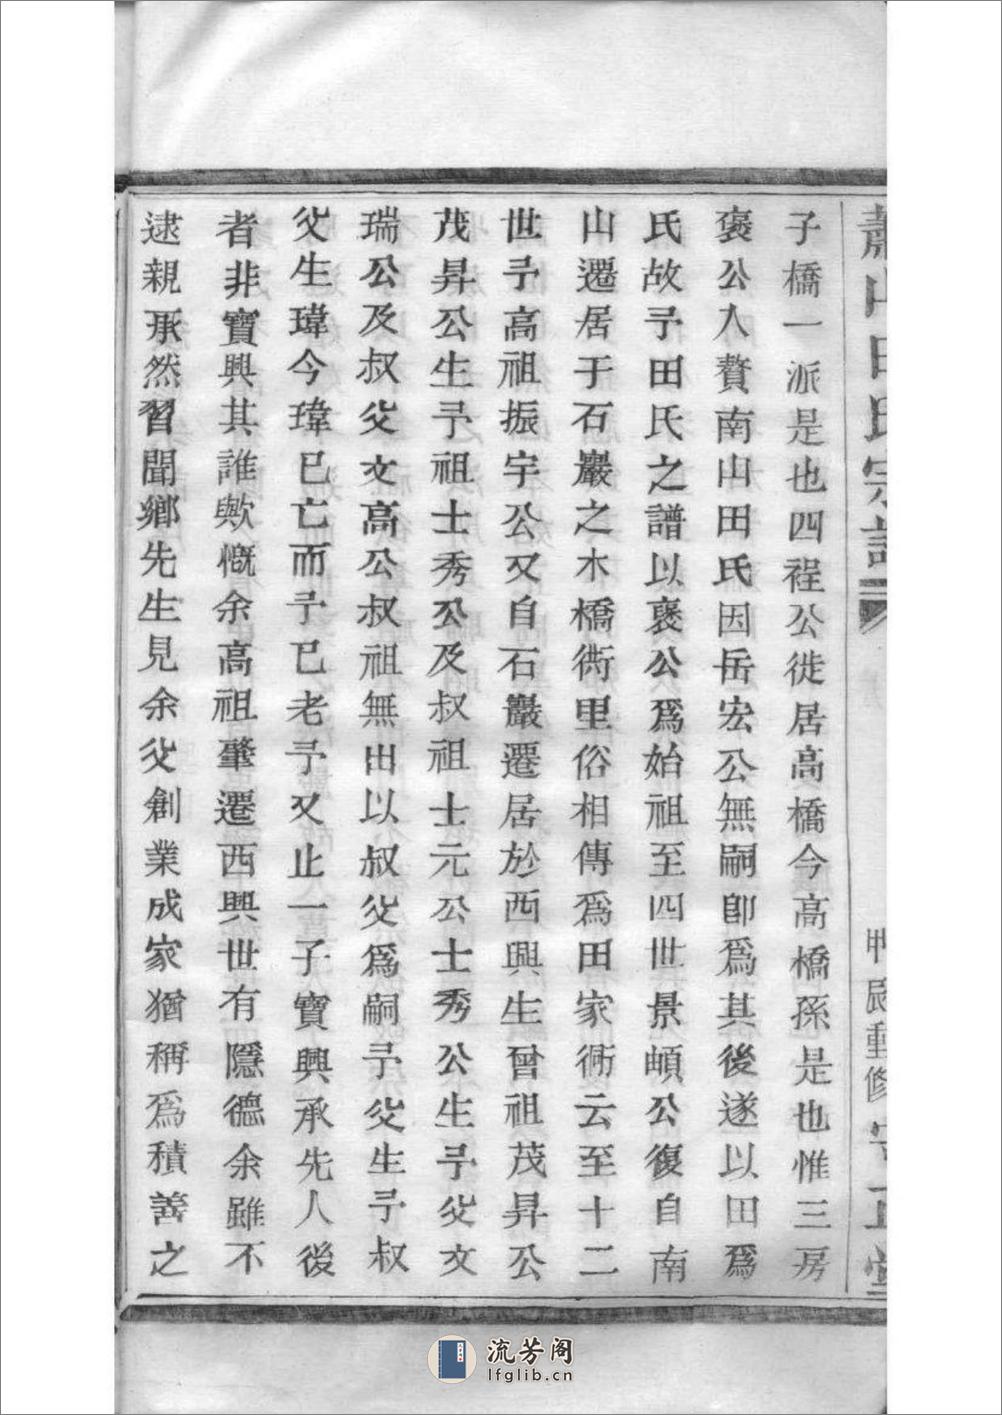 蕭山田氏宗譜
甲辰重修
子橋一派是也四裎公徙居高橋今高橋孫是也惟三房
褒公入贅南山田氏因岳宏公無嗣卽爲其後遂以田爲
氏故予田氏之譜以褒公爲始祖至四世景㟲公復自南
山遷居于石巖之木橋衖里俗相傳爲田家衖云至十二
世予高祖振宇公又自石巖遷居於西興生曾祖茂昇公
茂昇公生予祖士秀公及叔祖士元公士秀公生予父文
瑞公及叔父文高公叔祖無出以叔父爲嗣予父生予叔
父生瑋今瑋已亡而予已老予又止一子寶興承先人後
者非寶興其誰歟慨余高祖肇遷西興世有隱德余雖不
逮親承然習聞鄉先生見余父創業成家猶稱爲積善之
流芳阁
lfglib.cn